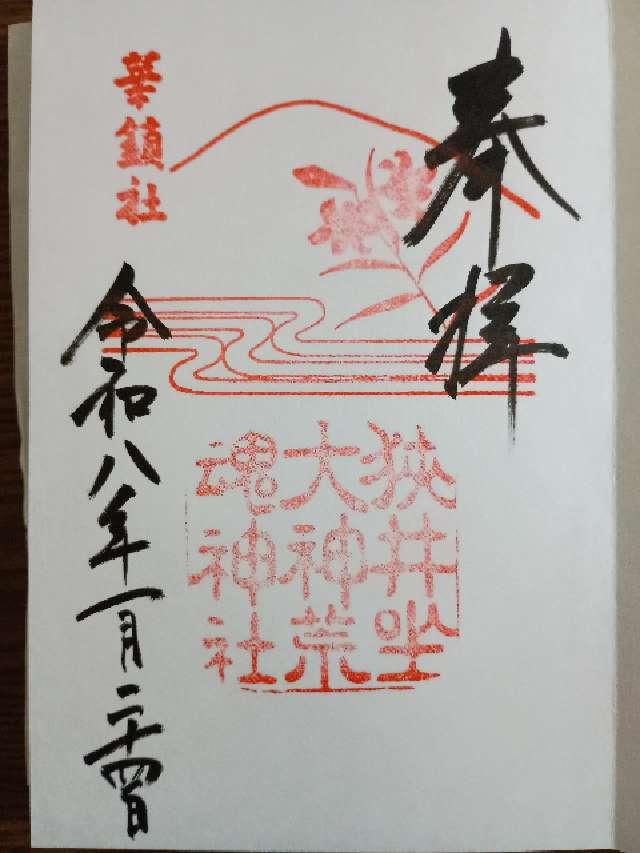 奉拝
狭井坐
大神荒
魂神社
華鎮社
令和八年一月二十四日